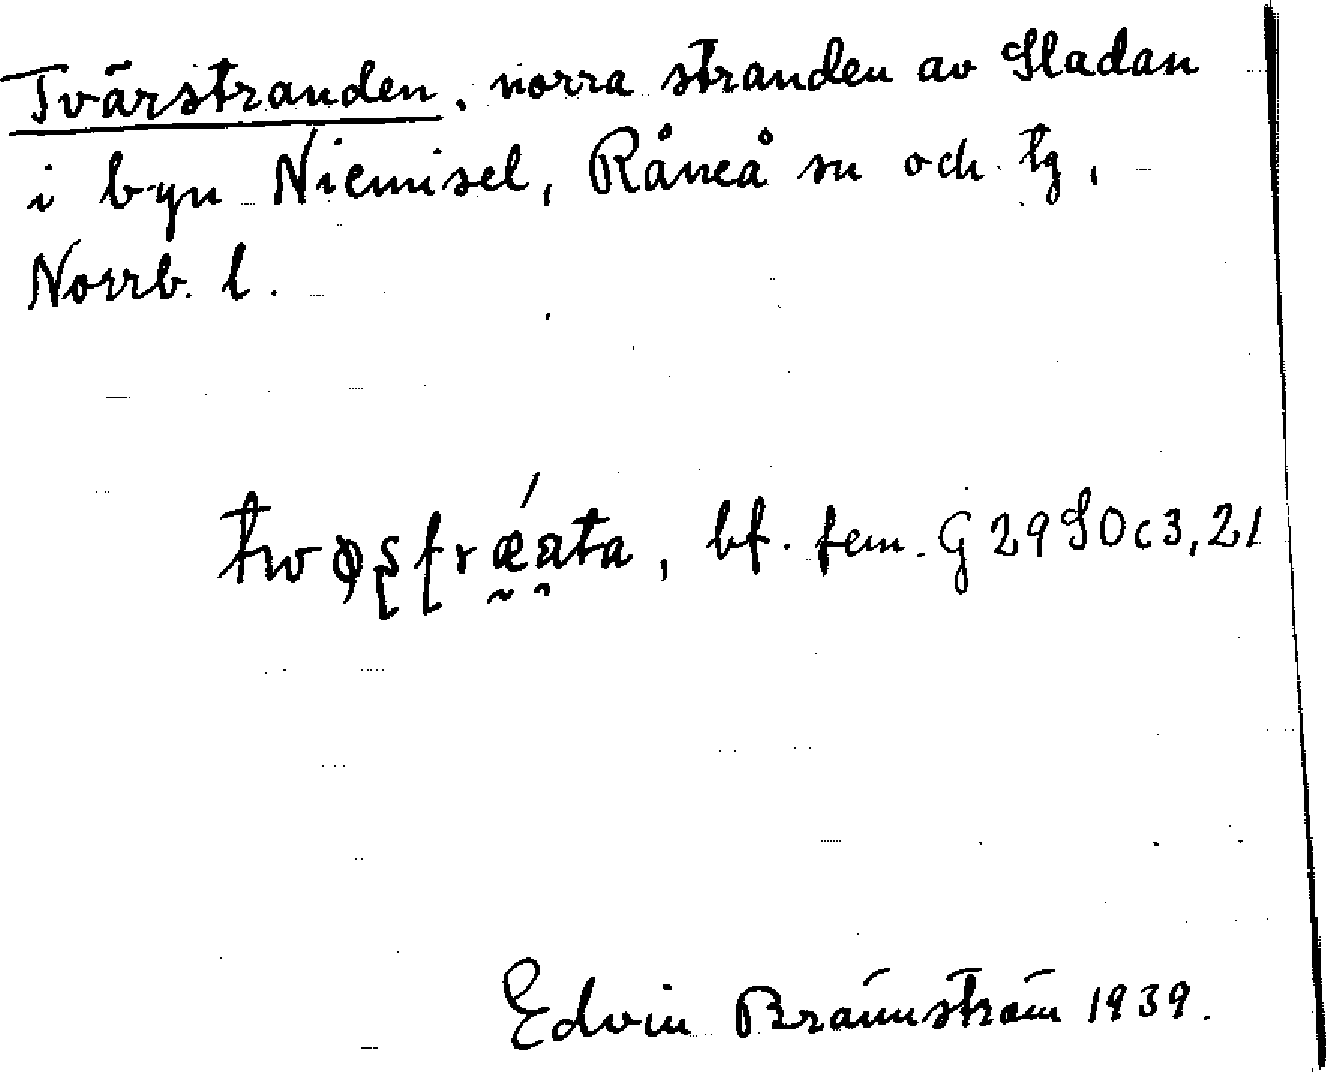 Tvärstranden, norra stranden av Sladan
i byn Niemisel, Råneå sn och tg,
Norrb. l.
bf. fem. G 29 S0c3,21
Edvin Brännström 1939.